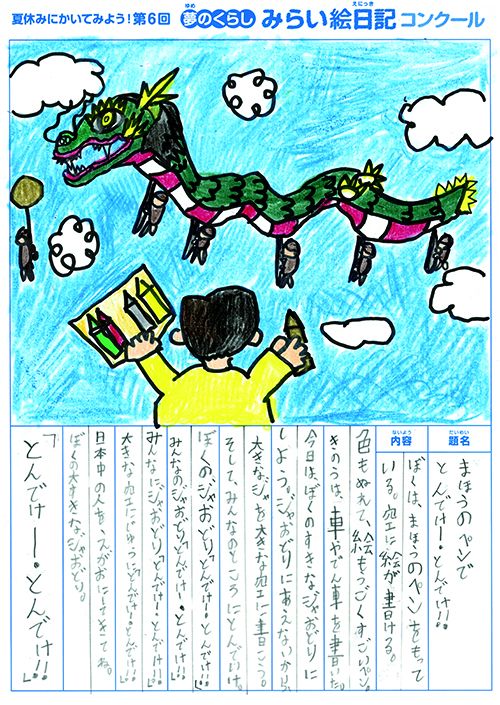 夏休みにかいてみよう!第6回 夢のくらし みらい絵日記コンクール
ゆめ
えにっき
だいめい
題名
まほうのペンで
とんでけー・とんでけ!!
ないよう
内容
ぼくは、まほうのペンをもって
いる。空に絵が書ける。
色もぬれて、絵もすごくすごいペン。
きのうは、車やでん車を書いた。
今日は、ぼくのすきなジャおどりに
しよう。ジャおどりにあえないから、
大きなジャを大きな空に書こう。
そして、みんなのところにとんでいけ。
ぼくのジャおどり「とんでけー・とんでけ!!」。
みんなのジャおどり「とんでけー・とんでけ!!」。
みんなにジャおどり「とんでけー・とんでけ!!」。
大きな空にじゆうに「とんでけー・とんでけ!!」。
日本中の人を、えがおにしてきてね。
ぼくの大すきな、ジャおどり。
「とんでけー・とんでけ!!」。